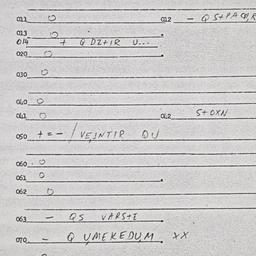 011 O 012 - Q S+PACU,R
013 O
014 + Q DZ+IR U...
020 O
030 O
040 O
041 O 042 S+OXN
050 + = - / VEJN+IR QU
060 O
061 O
062 O
063 - QS VARS+E
070 - Q U,MEKEDUM XX